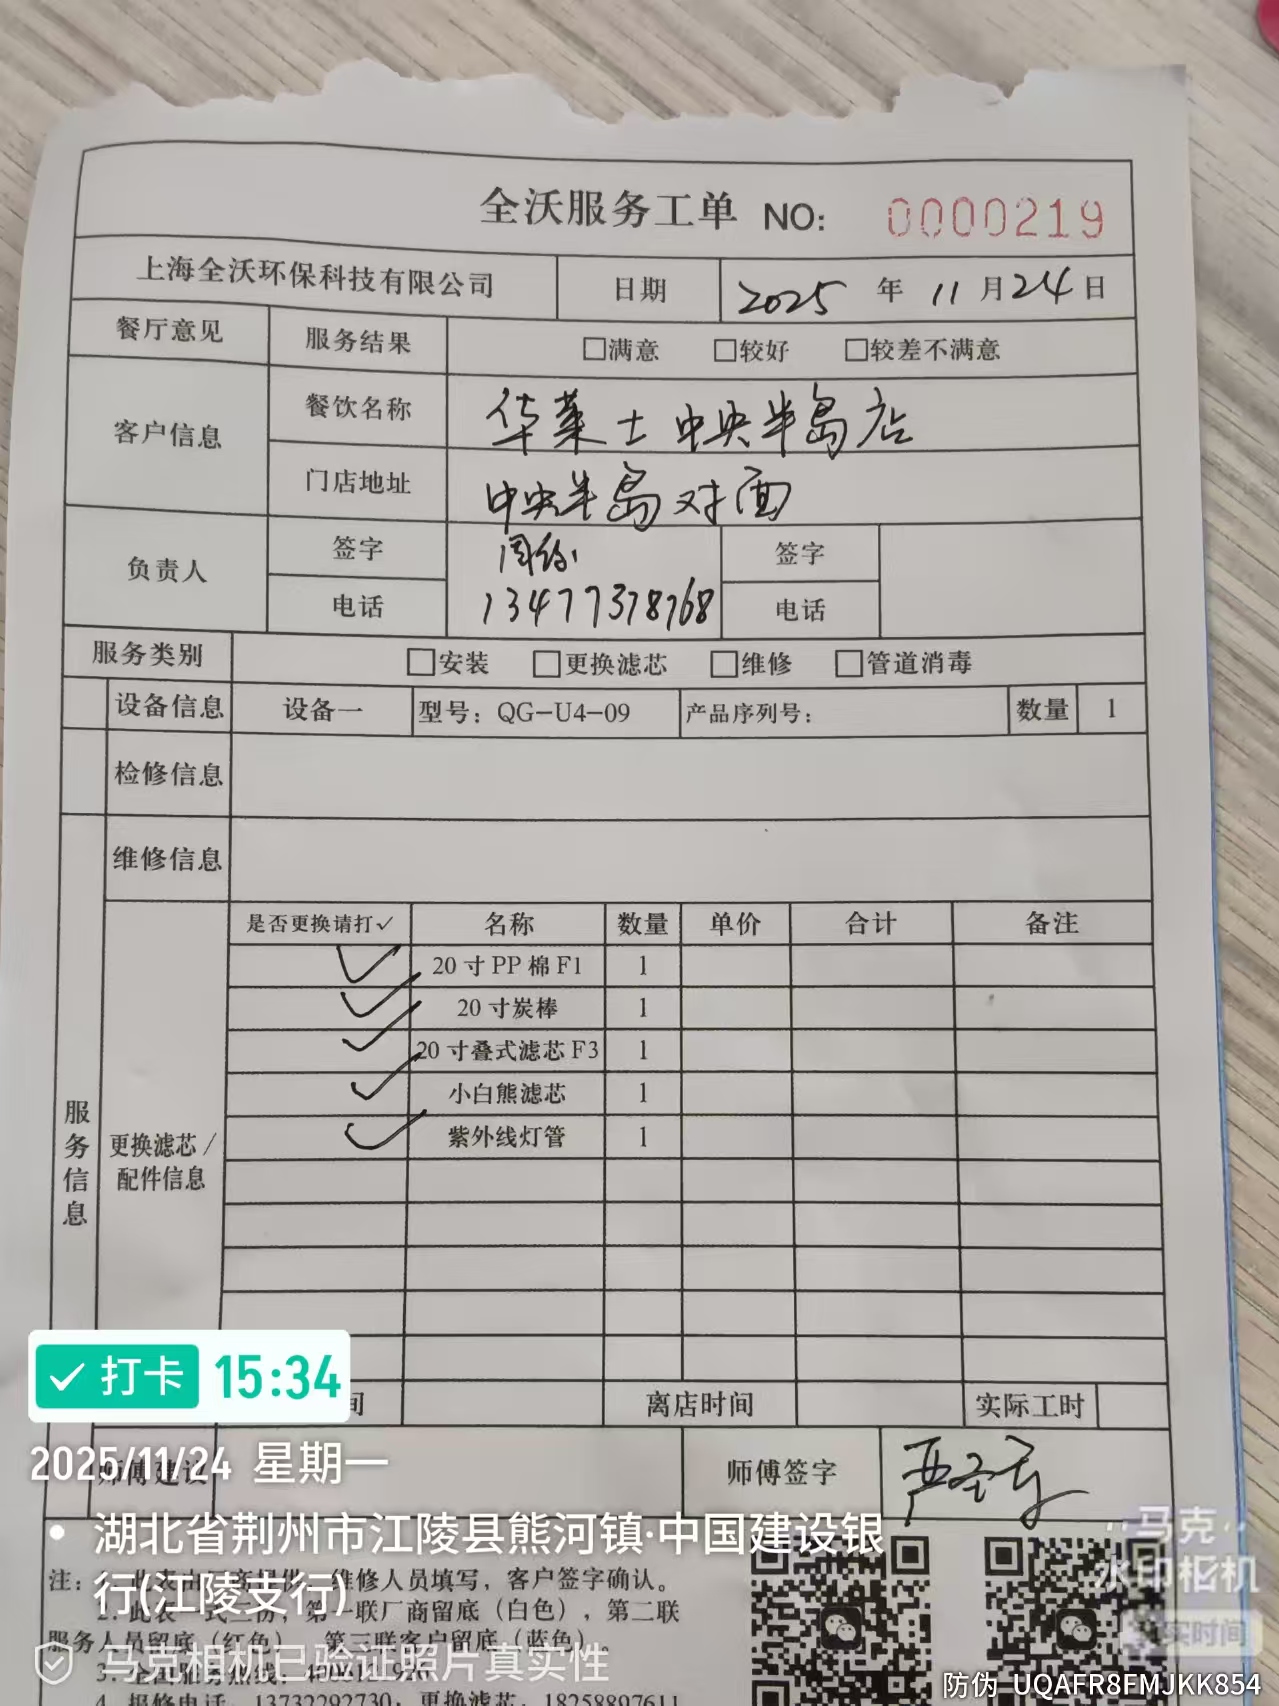 全沃服务工单 NO: 0000219
上海全沃环保科技有限公司 日期 2025 年 11 月 24 日
餐厅意见 服务结果 □满意 □较好 □较差不满意
客户信息 餐饮名称 华莱士中央半岛店
门店地址 中央半岛对面
负责人 签字 签字
电话 13477378768 电话
服务类别 □安装 □更换滤芯 □维修 □管道消毒
设备信息 设备一 型号：QG-U4-09 产品序列号： 数量 1
检修信息
维修信息
服务信息
更换滤芯/配件信息
是否更换请打✓ 名称 数量 单价 合计 备注
✓ 20寸PP棉F1 1
✓ 20寸炭棒 1
✓ 20寸叠式滤芯F3 1
✓ 小白熊滤芯 1
✓ 紫外线灯管 1
间 离店时间 实际工时
师傅建议 师傅签字
打卡 15:34
2025/11/24 星期一
湖北省荆州市江陵县熊河镇·中国建设银
行(江陵支行)
注： 维修人员填写，客户签字确认。
第一联厂商留底（白色），第二联
服务人员留底（红色） 第三联客户留底（蓝色）。
3. 全国服务热线：
4. 报修电话 13732292730，更换滤芯 18258897611
马克相机已验证照片真实性
马克
水印相机
真实时间
防伪 UQAFR8FMJKK854